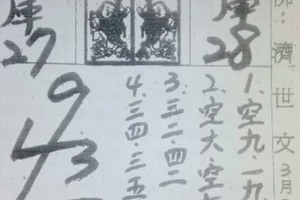 佛濟世文
3月
庫28
庫27
1.空九.一九
2.空大.空
3.三二.四二
4.三四.三五
9
43